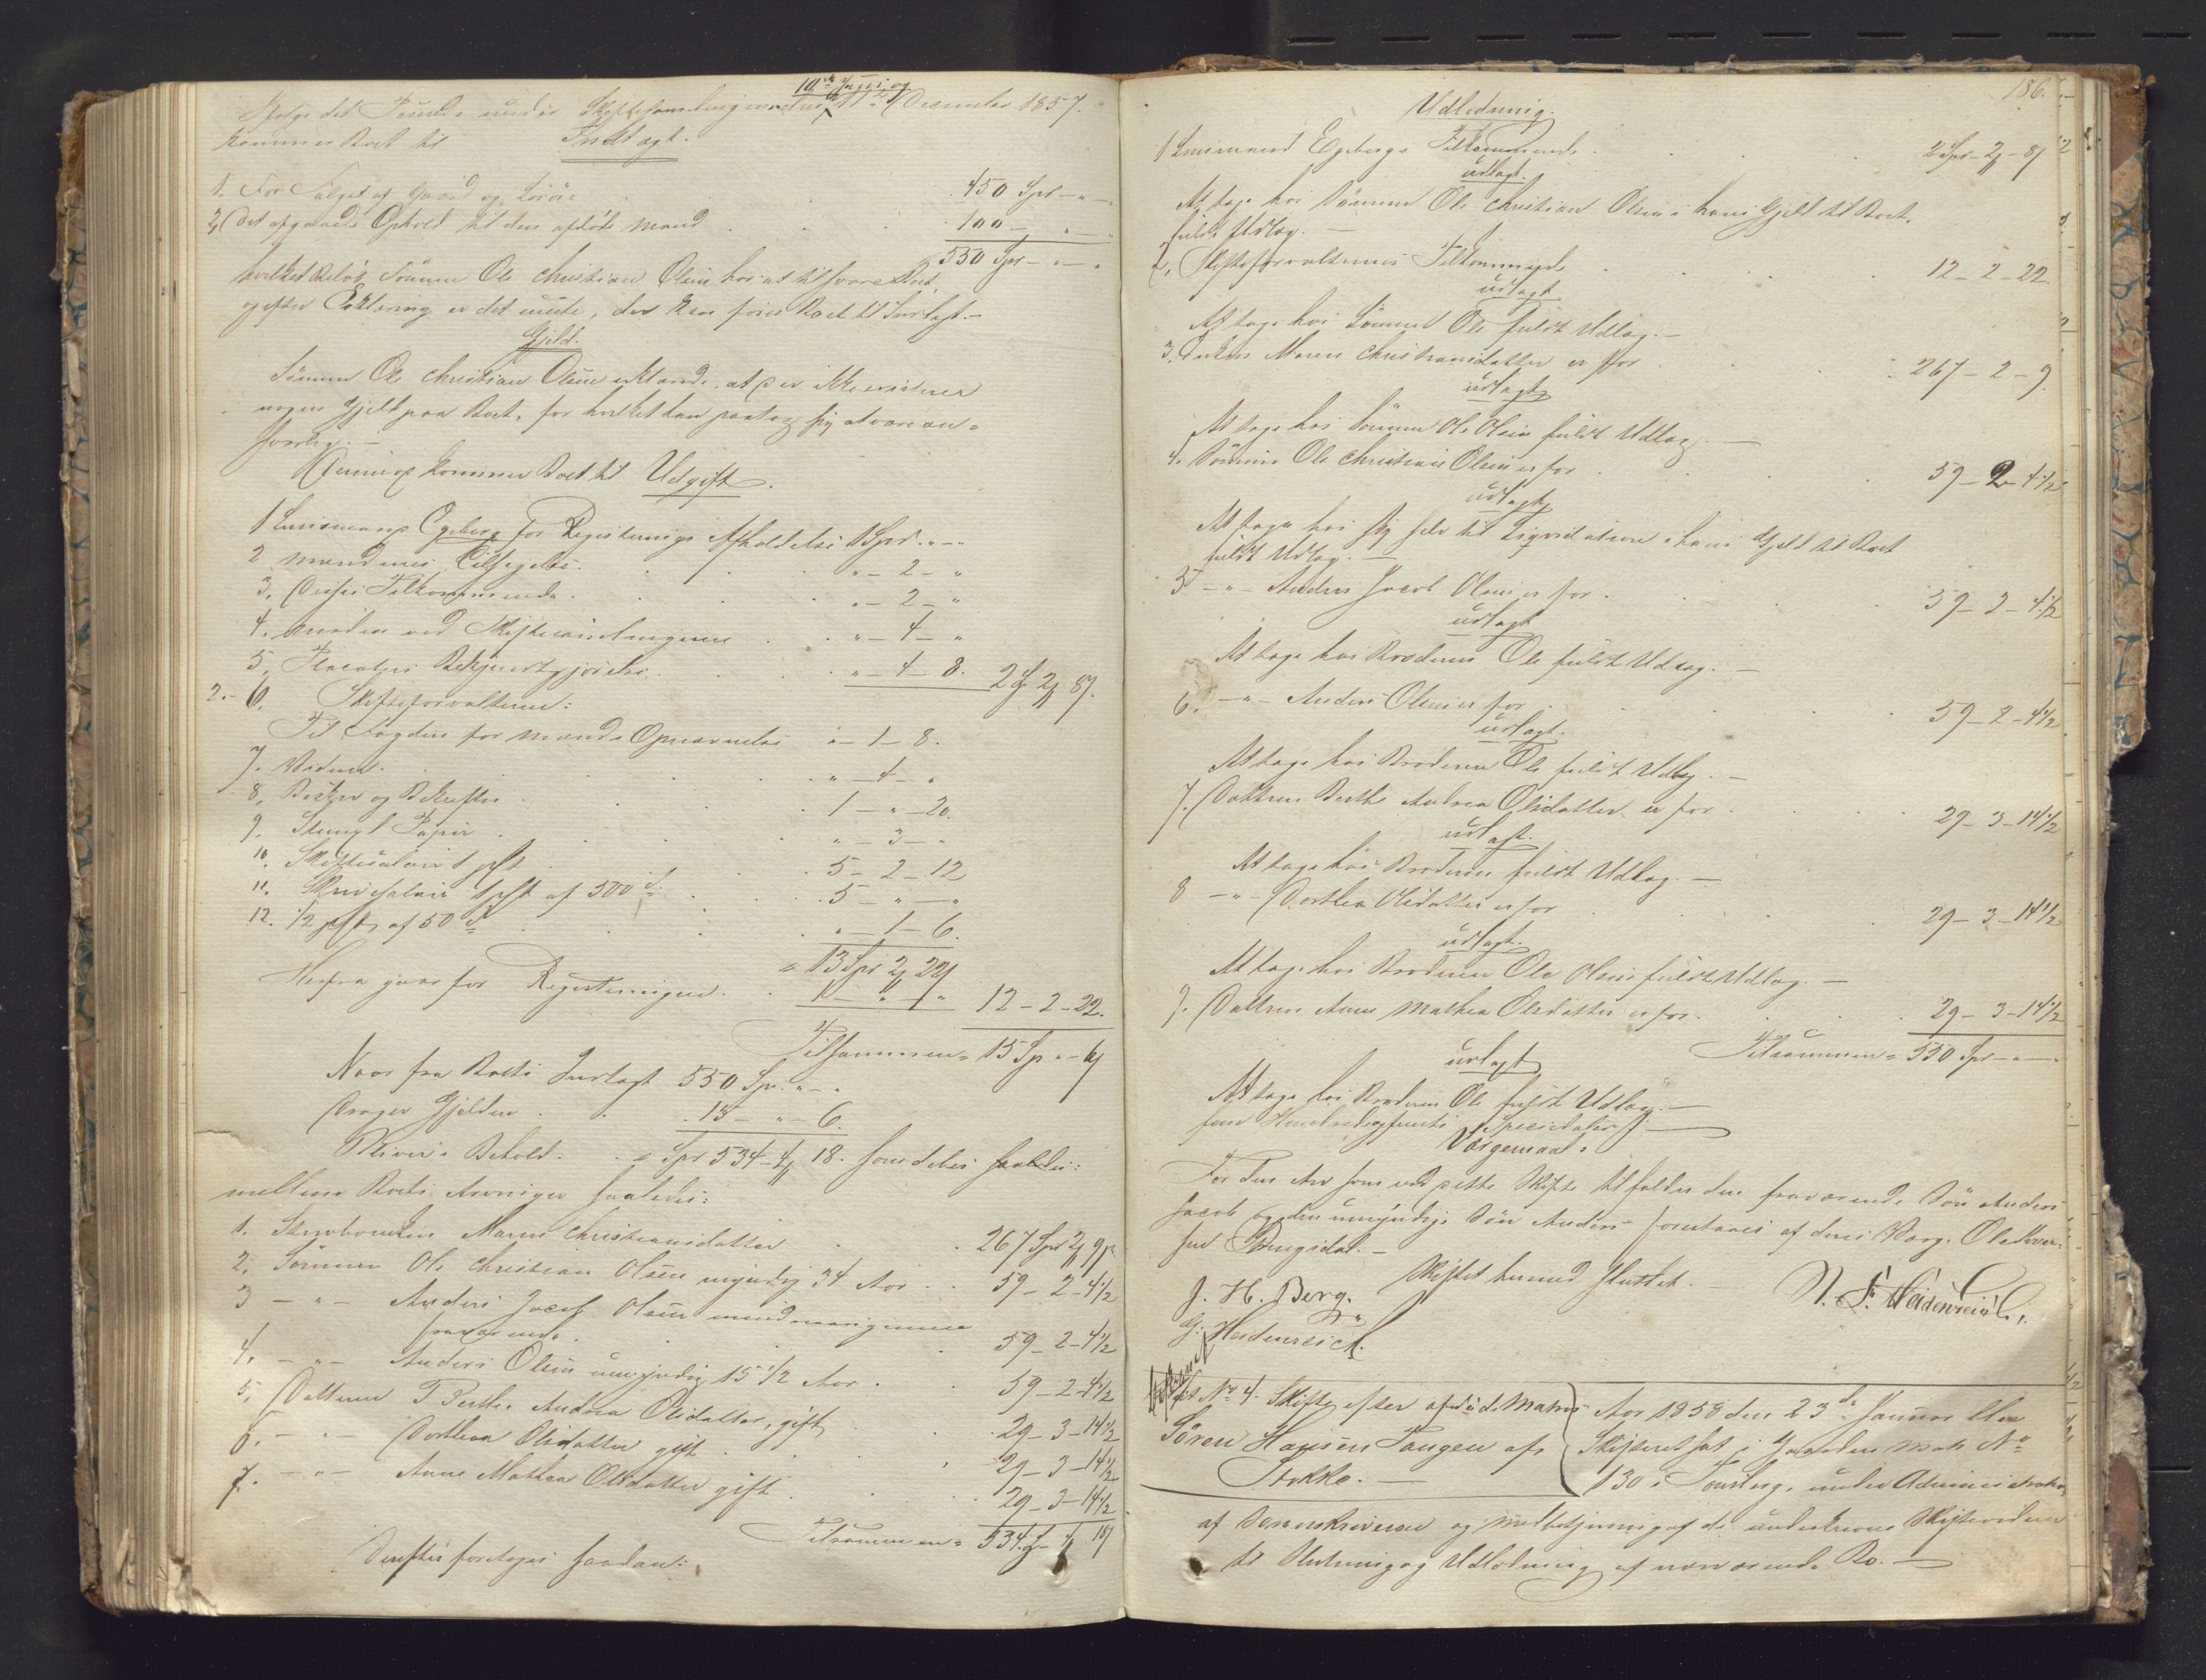 10de Juni og
Ifølge det Passerede under Skiftesamlingerne den 11te December 1857.
kommer Boet til Indtægt.
1. For Salget af Gaard og Løsöre 450 Spd - " - "
2, Det afgaaende Ophold til den afdöde Mand 100 - " - "
550 Spd - " - "
hvilket Belöb Sönnen Ole Christian Olsen har at tilsvare Boet,
og efter Erklæring er det eneste, der kan föres Boet til Indtægt. -
Gjeld.
Sönnen Ole Christian Olsen erklærede, at der ikke existerer
nogen Gjeld paa Boet, for hvilket han paatog sig at være an-
svarlig. -
Derimod kommer Boet til Udgift.
1 Lensmand Egeberg for Registrerings Afholdelse 1 Spd. " - "
2 Mændenes Tilsigelse. " - 2 - "
3. Disses Tilkommende. " - 2 - "
4. Mödet ved Skiftesamlingerne " - 4 - "
5, Placatens Bekjendtgjörelse. " - 4 - 8. 2 Spd 2 8
2. - 6. Skifteforvalteren:
Til Fogden for Mænds Opnævnelse " - 1 - 8.
7. " - 4 - "
8, 1 - " - 20.
9. Stempl. Papir " - 3 - "
10. Skiftesalair 1 pCt 5 - 2 - 12
11. Skriversalair 1 pCt af 500 d. 5 - " - "
12. 1/2 pCt af 50 d " - 1 - 6.
= 13 Spd 2 22
Herfra gaar for Registreringen. 1 - " - " 12 - 2 - 22.
Tilsammen = 15 Sp " - 6
Naar fra Boets Indtægt 550 Sp. " - "
drages Gjelden 15 - " - 6.
Bliver i Behold. = Spd 534 - 4 18. som deles saaledes:
mellem Boets Arvinger saaledes:
1. Stervboenken Maren Christiansdatter 267 Spd 2 9
2. Sönnen Ole Christian Olsen myndig 34 Aar 59 - 2 - 4 1/2
3 - " - Anders Jacob Olsen
fraværende 59 - 2 - 4 1/2
4. - " - Anders Olsen umyndig 15 1/2 Aar. 59 - 2 - 4 1/2
5, Datteren Berthe Andrea Olsdatter, gift 29 - 3 - 14 1/2
6. - " - Dorthea Olsdatter gift 29 - 3 - 14 1/2
7. - " - Anne Mathea Olsdatter gift 29 - 3 - 14 1/2
Tilsammen = 534 4 18
Derefter foretoges saadan:
186.
Udlodning.
1 Lensmand Egebergs Tilkommende 2 Spd - 2 - 8
udlagt.
At tage hos Sönnen Ole Christian Olsen i hans Gjeld til Boet,
fuldt Udlæg. -
2, Skifteforvalterens Tilkommende 12 - 2 - 22.
udlagt
At tage hos Sönnen Ole fuldt Udlæg. -
3. Enken Maren Christiansdatter er for 267 - 2 - 9.
udlagt
At tage hos Sönnen Ole Olsen fuldt Udlæg. -
4. Sönnen Ole Christian Olsen er for 59 - 2 - 4 1/2
udlagt
At tage hos sig selv til Liqvidation i hans Gjeld til Boet
fuldt Udlæg. -
5 - " - Anders Jacob Olsen er for 59 - 2 - 4 1/2
udlagt
At tage hos Broderen Ole fuldt Udlæg. -
6. - " - Anders Olsen er for 59 - 2 - 4 1/2
udlagt.
At tage hos Broderen Ole fuldt Udlæg. -
7. Datteren Berthe Andrea Olsdatter er for 29 - 3 - 14 1/2
udlagt.
At tage hos Broderen fuldt Udlæg. -
8 - " - Dorthea Olsdatter er for 29 - 3 - 14 1/2
udlagt.
At tage hos Broderen Ole Olsen fuldt Udlæg. -
9. Datteren Anne Mathea Olsdatter er for. 29 - 3 - 14 1/2
Tilsammen = 550 Spd - " - "
udlagt
At tage hos Broderen Ole fuldt Udlæg. -
fem Hundrede og femti Speciedaler. -
Værgemaal.
For den Arv som ved dette Skifte tilfalder den fraværende Sön Anders
Jacob og den umyndige Sön Anders foretages af deres Værge Ole
Skiftet hermed sluttet.
J. H. Berg. N. F. Heidenreich.
G. Heidenreich.
No 4. Skifte efter afdöde Matros
Sören Hansen Tangen af
Stokke. -
Aar 1858 den 23de Januar blev
Skifteret sat i Gaarden Matr No
130 i Tönsberg, under Administration
af Sorenskriveren og medbetjening af de underskrevne Skiftevidner
til Slutning og Udlodning af nærværende Bo. -